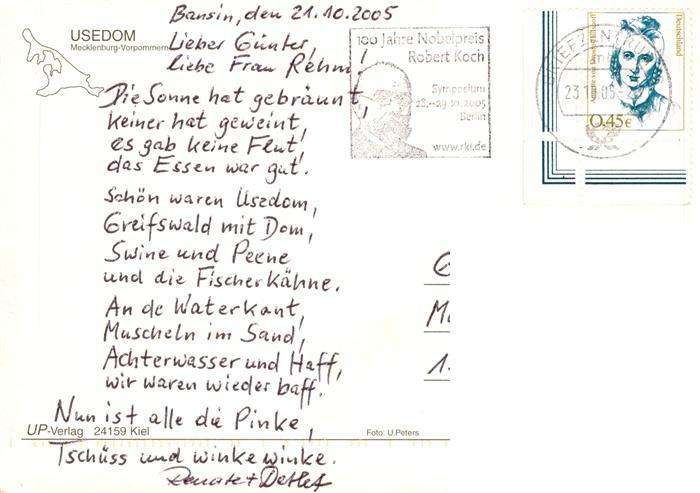 Bansin, den 21.10.2005
USEDOM
Mecklenburg-Vorpommern
Lieber Günter,
liebe Frau Rehm,
Die Sonne hat gebräunt,
keiner hat geweint,
es gab keine Flut,
das Essen war gut.
Schön waren Usedom,
Greifswald mit Dom,
Swine und Peene
und die Fischerkähne.
An de Waterkant,
Muscheln im Sand,
Achterwasser und Haff,
wir waren wieder baff.
Nun ist alle die Pinke,
Tschüss und winke winke.
Renate + Detlef
UP-Verlag 24159 Kiel
Foto: U.Peters
100 Jahre Nobelpreis
Robert Koch
Symposium
28.-29.10.2005
Berlin
www.rki.de
BRIEFZEN
Deutschland
0,45€